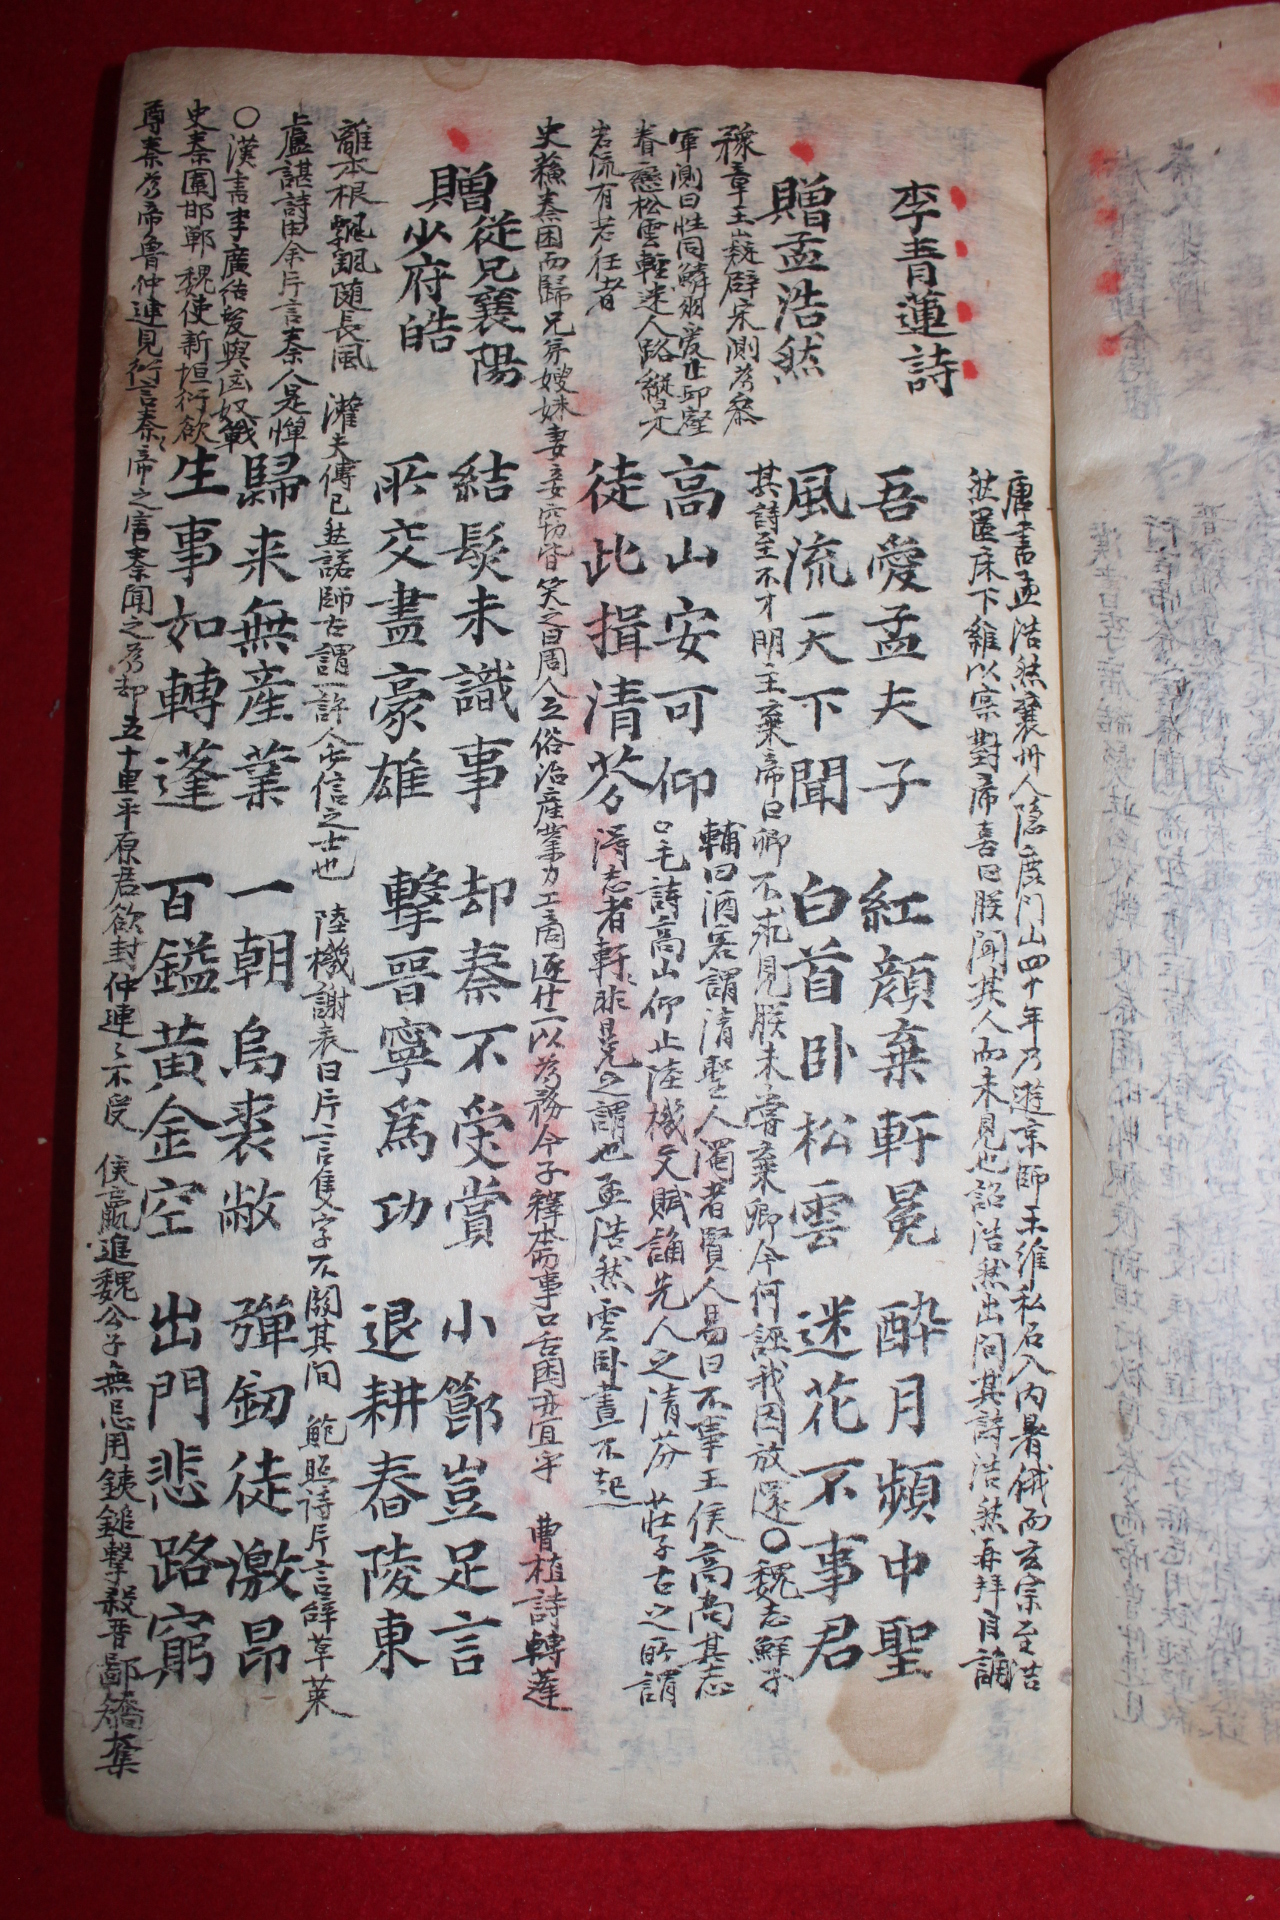 李青蓮詩
唐書孟浩然襄州人隱鹿門山四十年乃遊京師王維私召入內署俄而玄宗至浩
然匿床下維以宗對帝喜曰朕聞其人而未見也詔浩然出問其詩浩然再拜自誦
贈孟浩然
吾愛孟夫子 紅顔棄軒冕 酔月頻中聖
風流天下聞 白首卧松雲 迷花不事君
其詩至不才明主棄帝曰卿不求見朕未嘗棄卿今何誣我因放還〇魏志鮮于
輔曰酒客謂清聖人濁者賢人易曰不事王侯高尚其志
豫章王嶷辟宗測為叅
軍測曰性同鱗羽愛止邱壑
眷戀松雲軽迷人路縱
岩流有若任者
高山安可仰
徒此揖清芬
毛詩高山仰止陸機文賦誦先人之清芬 莊子古之所謂
得志者軒非冕之謂也孟浩然雲卧晝不起
史蘓秦困而歸兄弟嫂妹妻妾竊皆笑之曰周人之俗治産業力工商逐什二以為務今子釋本而事口舌困亦宜乎 曹植詩轉蓬
贈從兄襄陽少府皓
結髮未識事 却秦不受賞 小節豈足言
所交盡豪雄 擊晋寧爲功 退耕舂陵東
離本根飄飄随長風 灌夫傳已然諾師古謂一許人必信之士也 陸機謝表曰片言隻字不関其間 鮑照詩片言辞草莱
上盧諶詩由余片言秦人是憚
〇漢書李廣結髮與匈奴戦
歸来無産業 一朝烏裘敝 彈劒徒激昂
生事如轉蓬 百鎰黄金空 出門悲路窮
史秦圍邯鄲魏使新垣衍欲
尊秦為帝魯仲連見衍言秦帝之害秦聞之為却五十里平原君欲封仲連不受 侯嬴進魏公子無忌用鉄鎚撃殺晋鄙矯奪